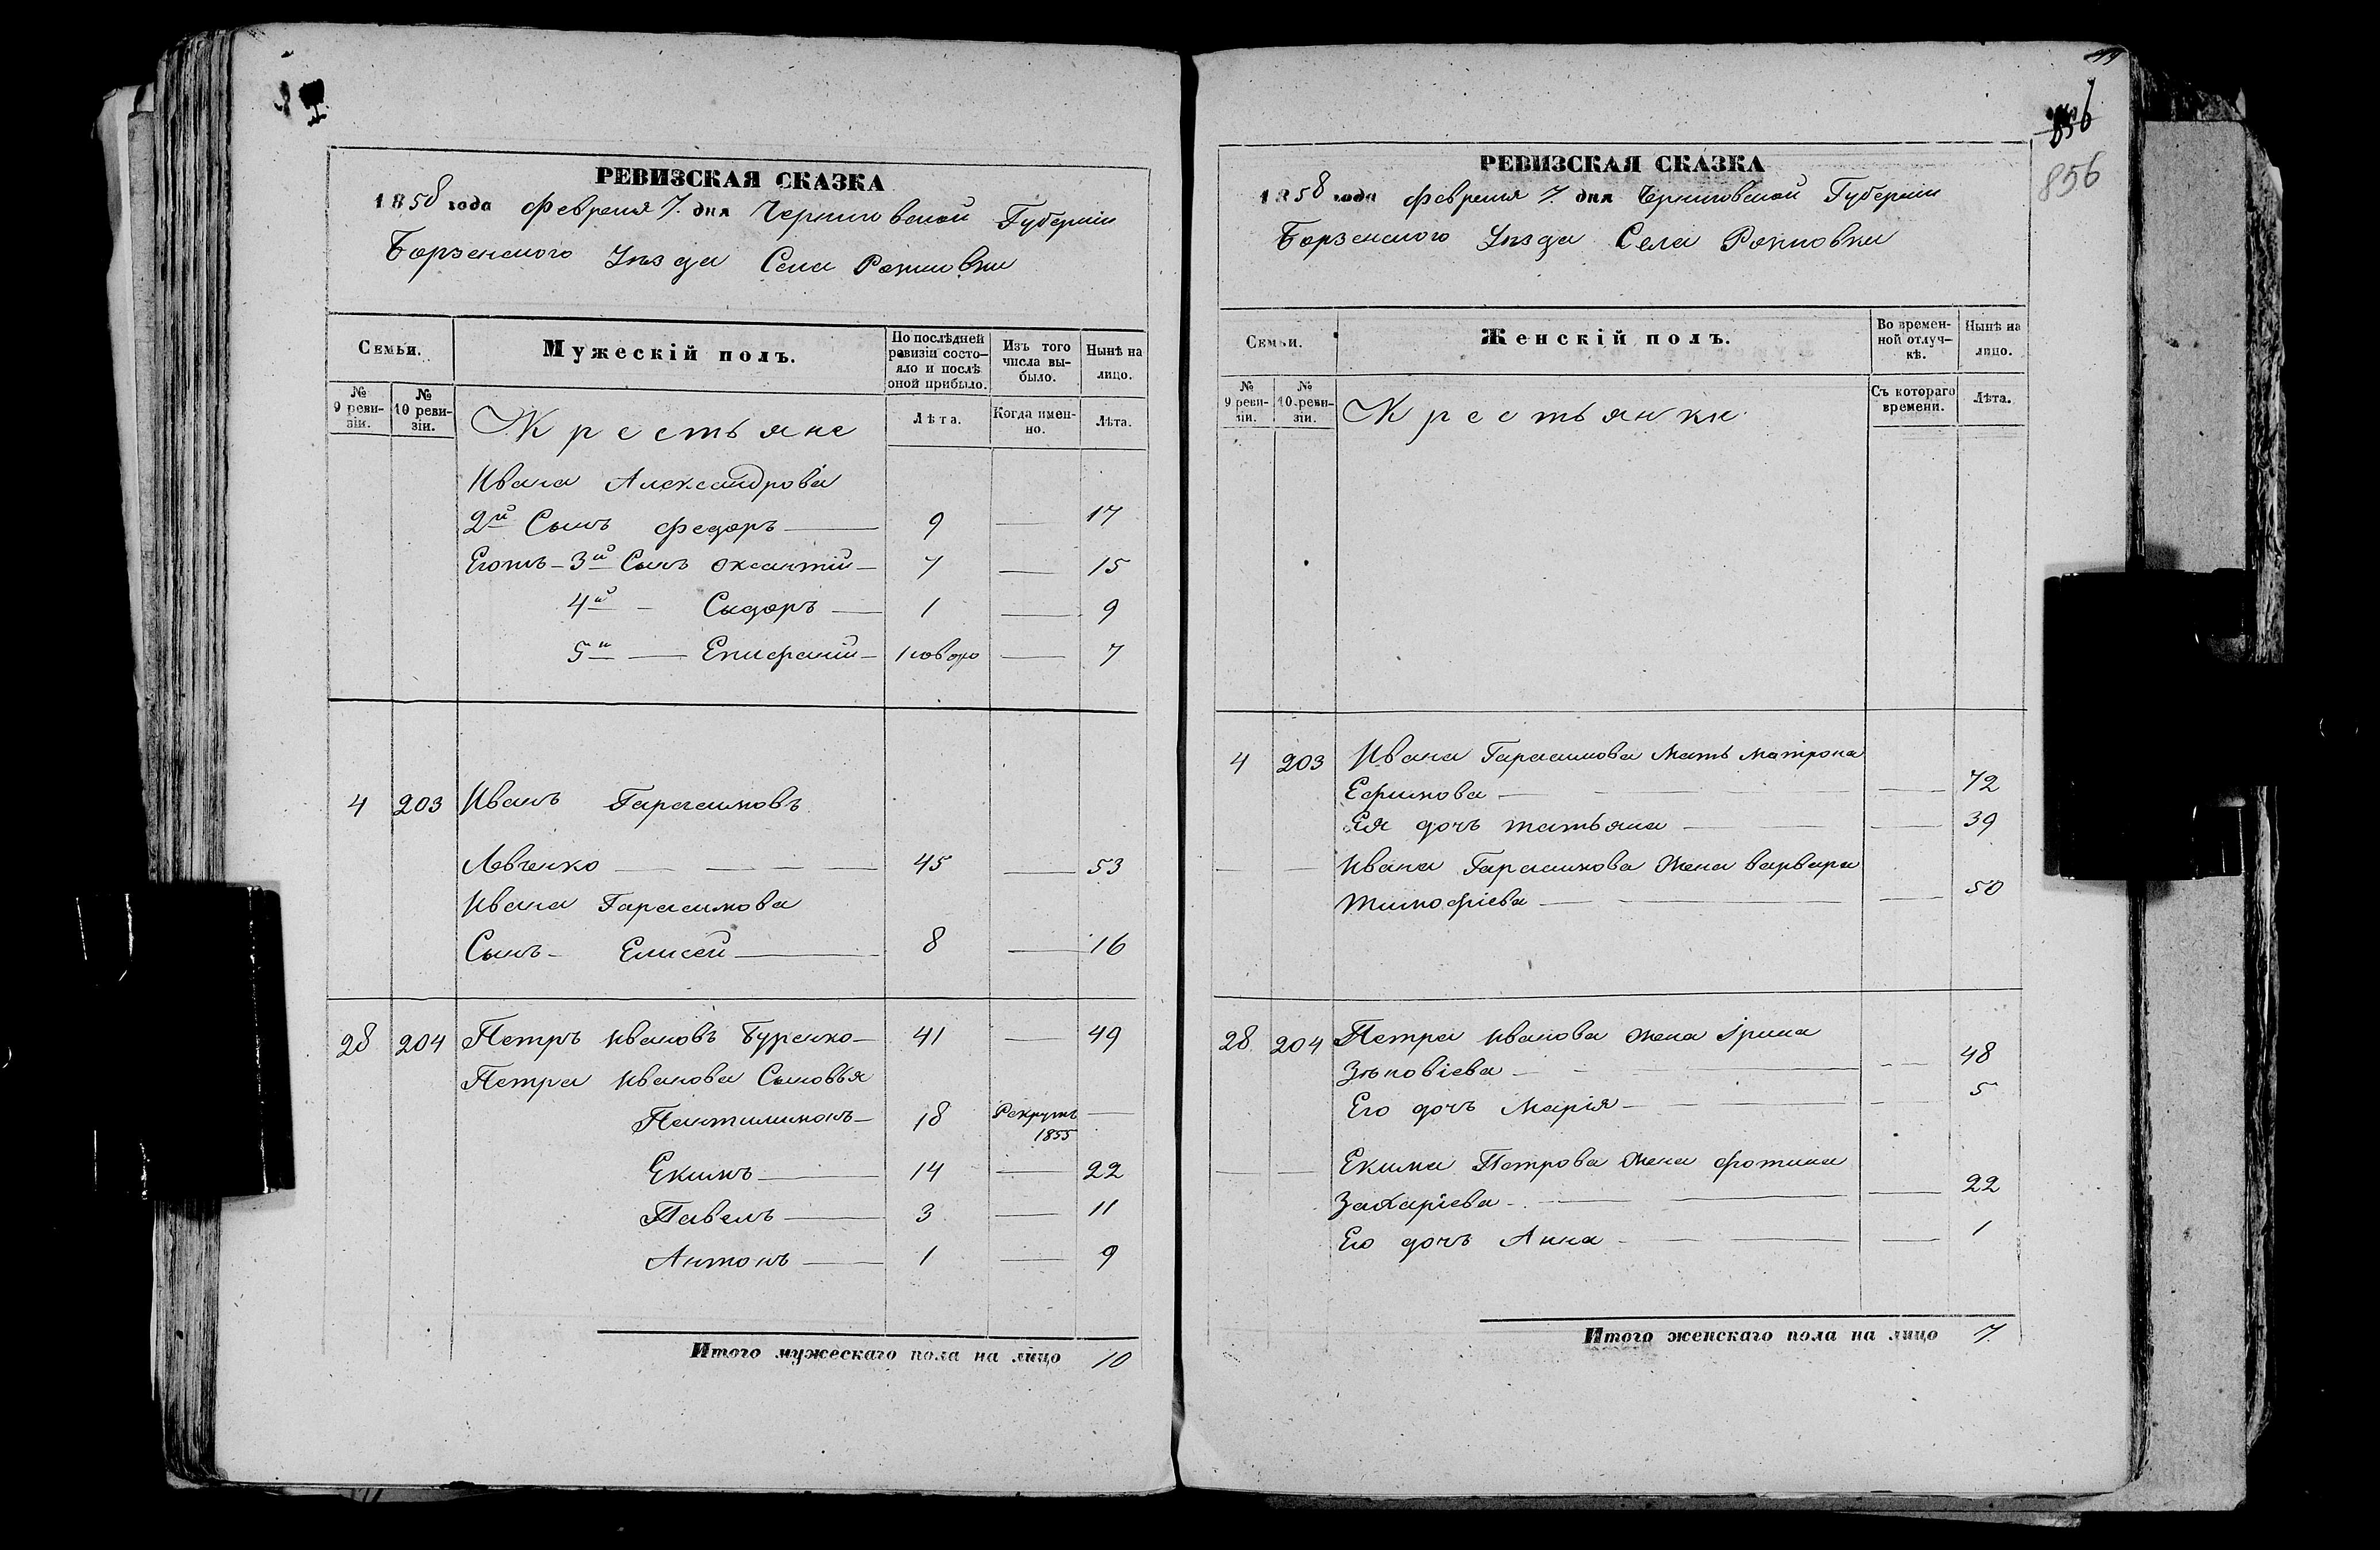 РЕВИЗСКАЯ СКАЗКА
1858 года Февраля 7. дня Черниговской Губерніи
Борзенского Уѣзда Села Рожновки
Семьи.
Мужескій полъ.
По послѣдней ревизіи состояло и послѣ оной прибыло.
Изъ того числа выбыло.
Нынѣ на лицо.
№ 9 ревизіи.
№ 10 ревизіи.
Крестьяне
Лѣта.
Когда именно.
Лѣта.
Ивана Александрова
2й Сынъ Федоръ — 9 — 17
3й Сынъ Оксантій — 7 — 15
4й — Сидоръ — 1 — 9
5й — Епифаній — — 7
4 203 Иванъ Гарасимовъ
Левченко — 45 — 53
Ивана Гарасимова
Сынъ — Елисей — 8 — 16
28 204 Петръ Ивановъ Буренко — 41 — 49
Петра Иванова Сыновья
Пантилимонъ — 18 Рекрутъ 1855 —
Екимъ — 14 — 22
Павелъ — 3 — 11
Антонъ — 1 — 9
Итого мужескаго пола на лицо 10
856
856
РЕВИЗСКАЯ СКАЗКА
1858 года Февраля 7. дня Черниговской Губерніи
Борзенского Уѣзда Села Рожновки
Семьи.
Женскій полъ.
Во временной отлучкѣ.
Нынѣ на лицо.
№ 9 ревизіи.
№ 10 ревизіи.
Крестьянки
Съ котораго времени.
Лѣта.
4 203 Ивана Гарасимова Мать Матрона
Ефимова — — 72
Ея дочь Татьяна — — 39
Ивана Гарасимова Жена Варвара
Тимофіева — — 50
28 204 Петра Иванова Жена Ірина
Зѣновіева — — 48
Его дочь Марія — — 5
Екима Петрова Жена Фотина
Захаріева — — 22
Его дочь Анна — — 1
Итого женскаго пола на лицо 7.